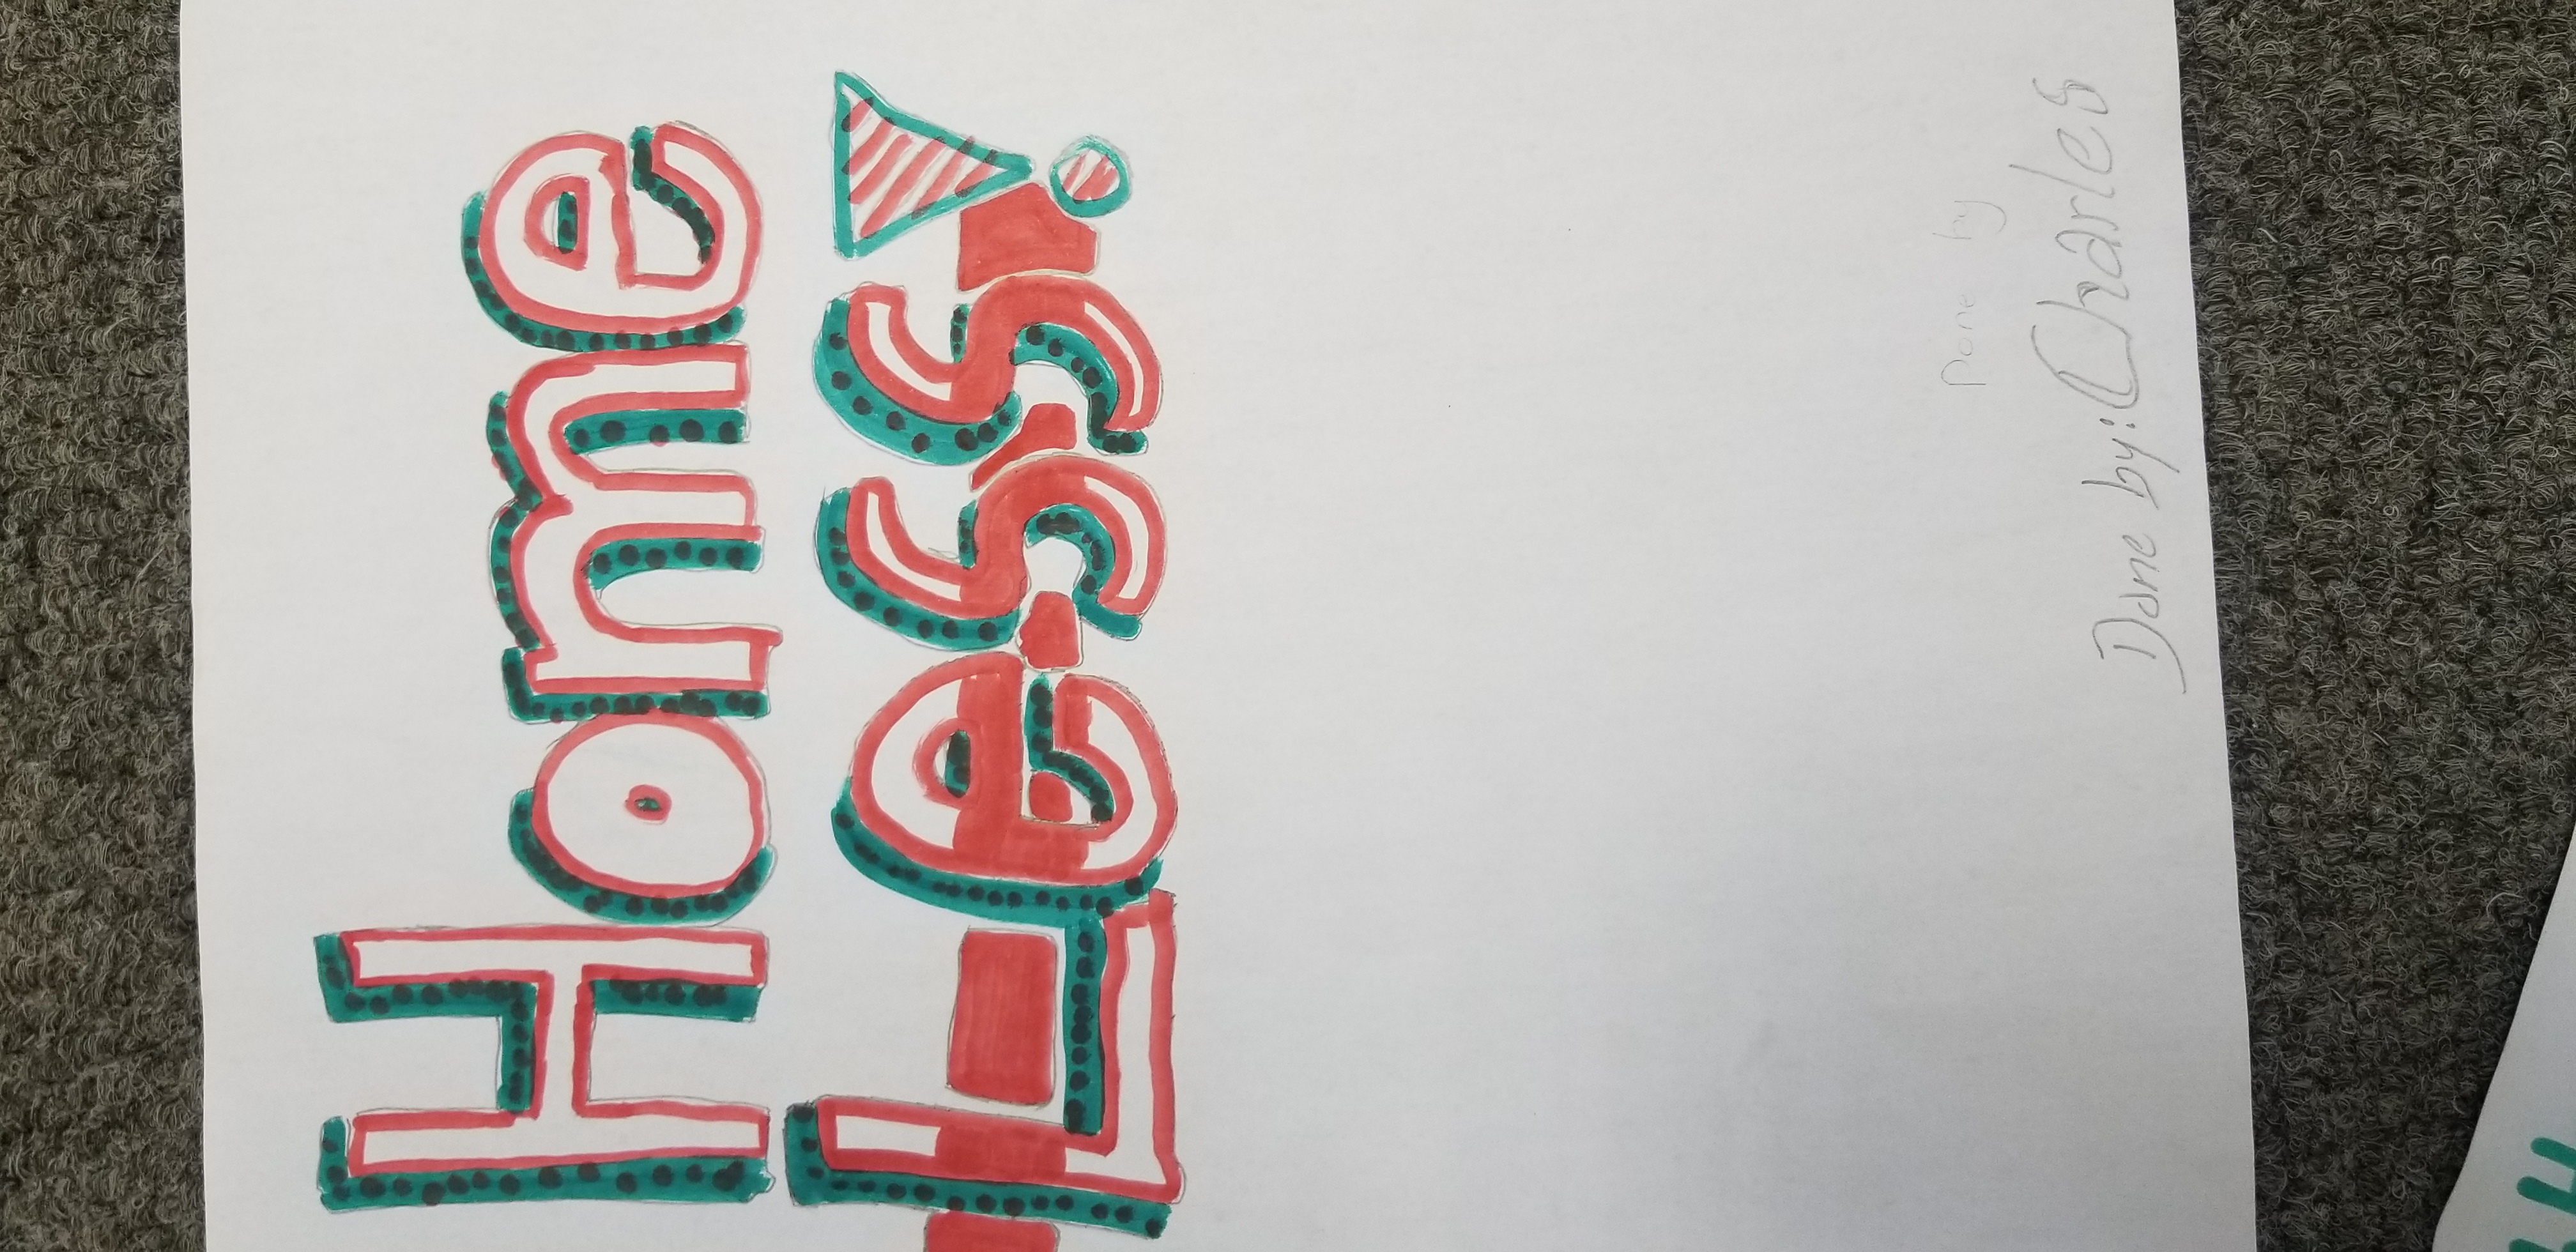 Home
Less!
Done by
Done by: Charles